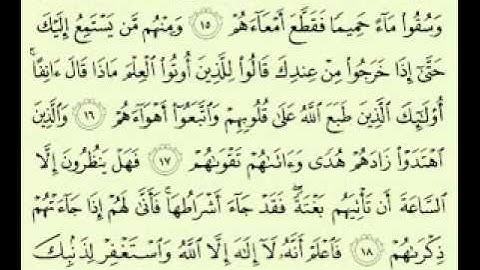 وَسُقُوا۟ مَآءً حَمِيمًا فَقَطَّعَ أَمْعَآءَهُمْ ١٥ وَمِنْهُم مَّن يَسْتَمِعُ إِلَيْكَ
حَتَّىٰٓ إِذَا خَرَجُوا۟ مِنْ عِندِكَ قَالُوا۟ لِلَّذِينَ أُوتُوا۟ ٱلْعِلْمَ مَاذَا قَالَ ءَانِفًا ۚ
أُو۟لَـٰٓئِكَ ٱلَّذِينَ طَبَعَ ٱللَّهُ عَلَىٰ قُلُوبِهِمْ وَٱتَّبَعُوٓا۟ أَهْوَآءَهُمْ ١٦ وَٱلَّذِينَ
ٱهْتَدَوْا۟ زَادَهُمْ هُدًى وَءَاتَىٰهُمْ تَقْوَىٰهُمْ ١٧ فَهَلْ يَنظُرُونَ إِلَّا
ٱلسَّاعَةَ أَن تَأْتِيَهُم بَغْتَةً ۖ فَقَدْ جَآءَ أَشْرَاطُهَا ۚ فَأَنَّىٰ لَهُمْ إِذَا جَآءَتْهُمْ
ذِكْرَىٰهُمْ ١٨ فَٱعْلَمْ أَنَّهُۥ لَآ إِلَـٰهَ إِلَّا ٱللَّهُ وَٱسْتَغْفِرْ لِذَنۢبِكَ